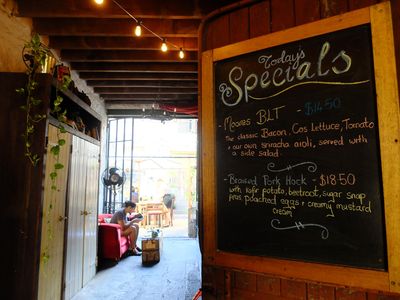 Today's
Specials
- Moores BLT - $14.50
The classic Bacon, Cos Lettuce, Tomato
+ our own sriracha aioli, served with
a side salad.
- Braised Pork Hock - $18.50
with kipfler potato, beetroot, sugar snap
peas, poached eggs + creamy mustard
cream